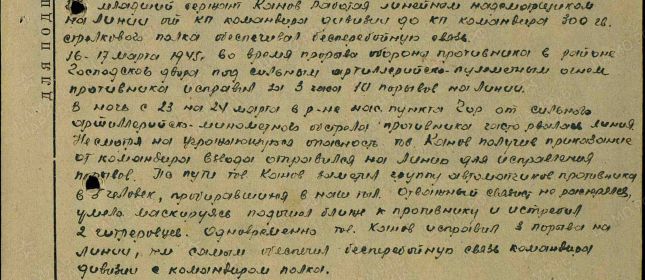 младший сержант Канов работая линейным надсмотрщиком
на линии от КП командира дивизии до КП командира 300 гв.
стрелкового полка обеспечивал бесперебойную связь.
16-17 марта 1945г. во время прорыва обороны противника в районе
Господсков двора под сильным артиллерийско-пулеметным огнем
противника исправил за 3 часа 10 порывов на линии.
В ночь с 23 на 24 марта в р-не нас. пункта Чор от сильного
артиллерийско-минометного обстрела противника часто рвалась линия
Несмотря на угрожающую опасность тов. Канов получив приказание
от командира взвода отправился на линию для исправления
порывов. По пути тов. Канов заметил группу автоматчиков противника
в человек, пробиравшихся в наш тыл. Отважный связист не растерялся,
умело маскируясь подошел ближе к противнику и истребил
2 гитлеровцев. Одновременно тов. Канов исправил 3 порыва на
линии, тем самым обеспечил бесперебойную связь командира
дивизии с командиром полка.
ДЛЯ ПОДШ